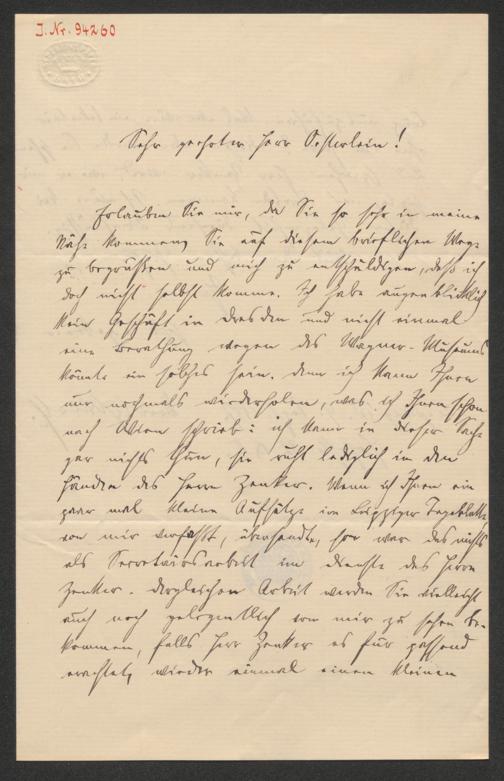 J. Nr. 94260
Sehr geehrter Herr Oesterlein!
Erlauben Sie mir, da Sie so sehr in meine
Nähe kommen, Sie auf diesem brieflichen Wege
zu begrüßen und mich zu entschuldigen, daß ich
doch nicht selbst komme. Ich habe augenblicklich
kein Geschäft in Dresden und nicht einmal
eine Berathung wegen des Wagner-Museums
könnte ein solches sein. Denn ich kann Ihnen
nur nochmals wiederholen, was ich Ihnen schon
nach Wien schrieb: ich kann in dieser Sache
gar nichts thun, sie ruht lediglich in den
Händen des Herrn Zenker. Wenn ich Ihnen ein
paar mal kleine Aufsätze im Leipziger Tageblatte
von mir verfaßt, übersandte, so war das nichts
als Secretärsarbeit im Dienste des Herrn
Zenker. Dergleichen Arbeit werden Sie vielleicht
auch noch gelegentlich von mir zu sehen be-
kommen, falls Herr Zenker es für passend
erachtet, wieder einmal einen kleinen